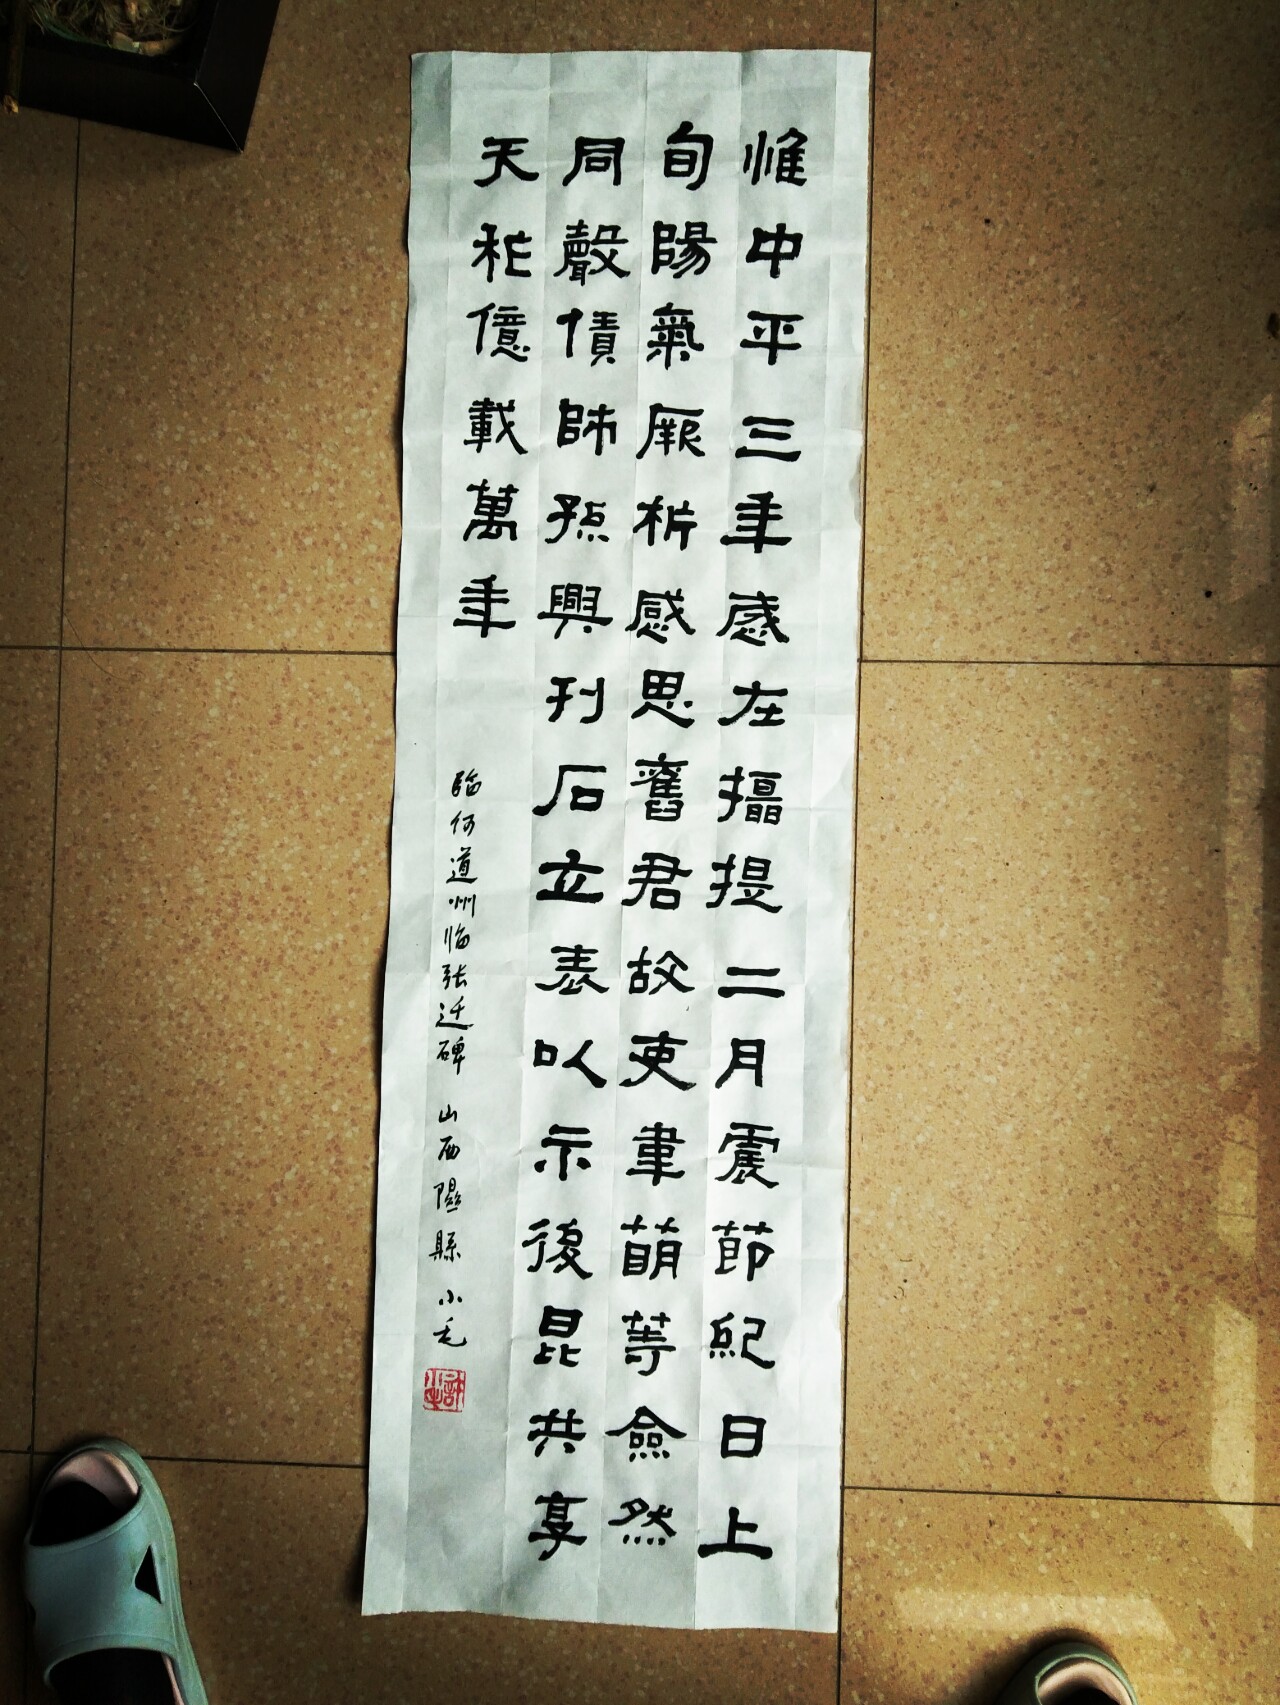 惟中平三年感在攝提二月震節紀日上
旬陽氣厥析感思舊君故吏韋萌等僉然
同聲債師孫興刊石立表以示後昆共享
天祚億載萬年
臨何道州临张迁碑 山西隰縣 小毛